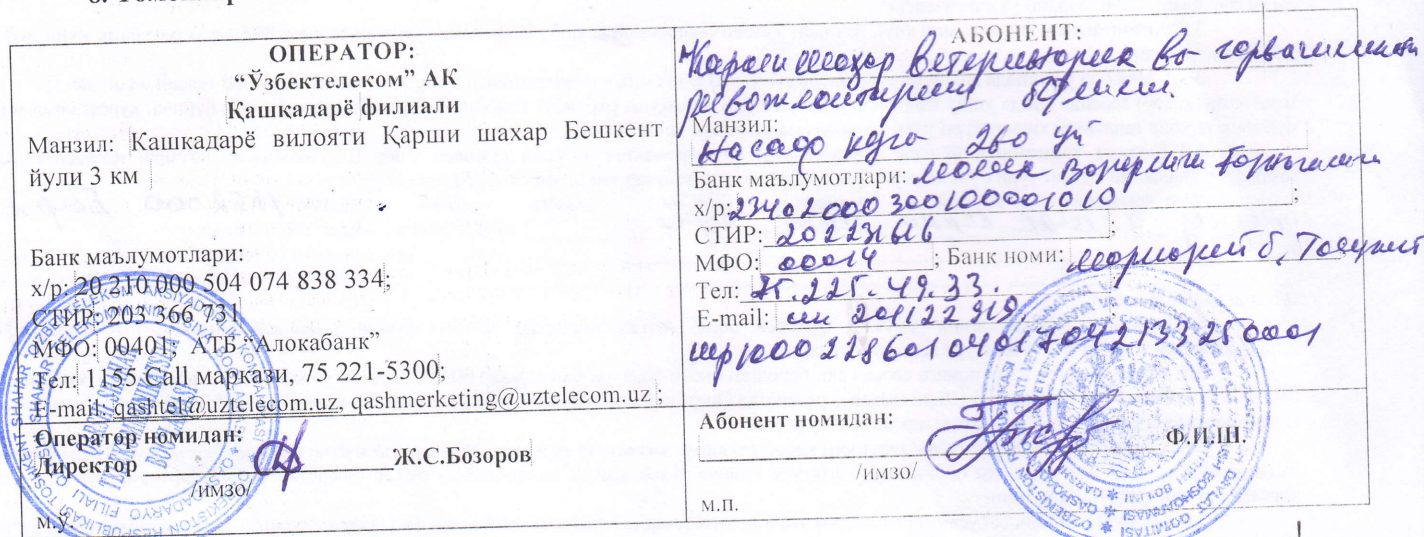 ОПЕРАТОР:
“Ўзбектелеком” АК
Қашқадарё филиали
Манзил: Кашкадарё вилояти Қарши шахар Бешкент
йули 3 км
Банк маълумотлари:
х/р: 20 210 000 504 074 838 334;
СТИР: 203 366 731
МФО: 00401; АТБ “Алокабанк”
Тел: 1155 Call маркази, 75 221-5300;
E-mail: qashtel@uztelecom.uz, qashmerketing@uztelecom.uz ;
Оператор номидан:
Директор Ж.С.Бозоров
/имзо/
м.ў.
АБОНЕНТ:
Карши шахар ветеринария ва чорвачиликни
ривожлантириш бўлими
Манзил:
Насаф кўча 260 уй
Банк маълумотлари: молия вазирлиги Газначилиги
х/р: 23402000300100001010 ;
СТИР: ;
МФО: 00014 ; Банк номи: Тошкент
Тел: 75.225.49.33.
E-mail: 201122919.
100022860104017042133250001
Абонент номидан:
Ф.И.Ш.
/имзо/
м.п.